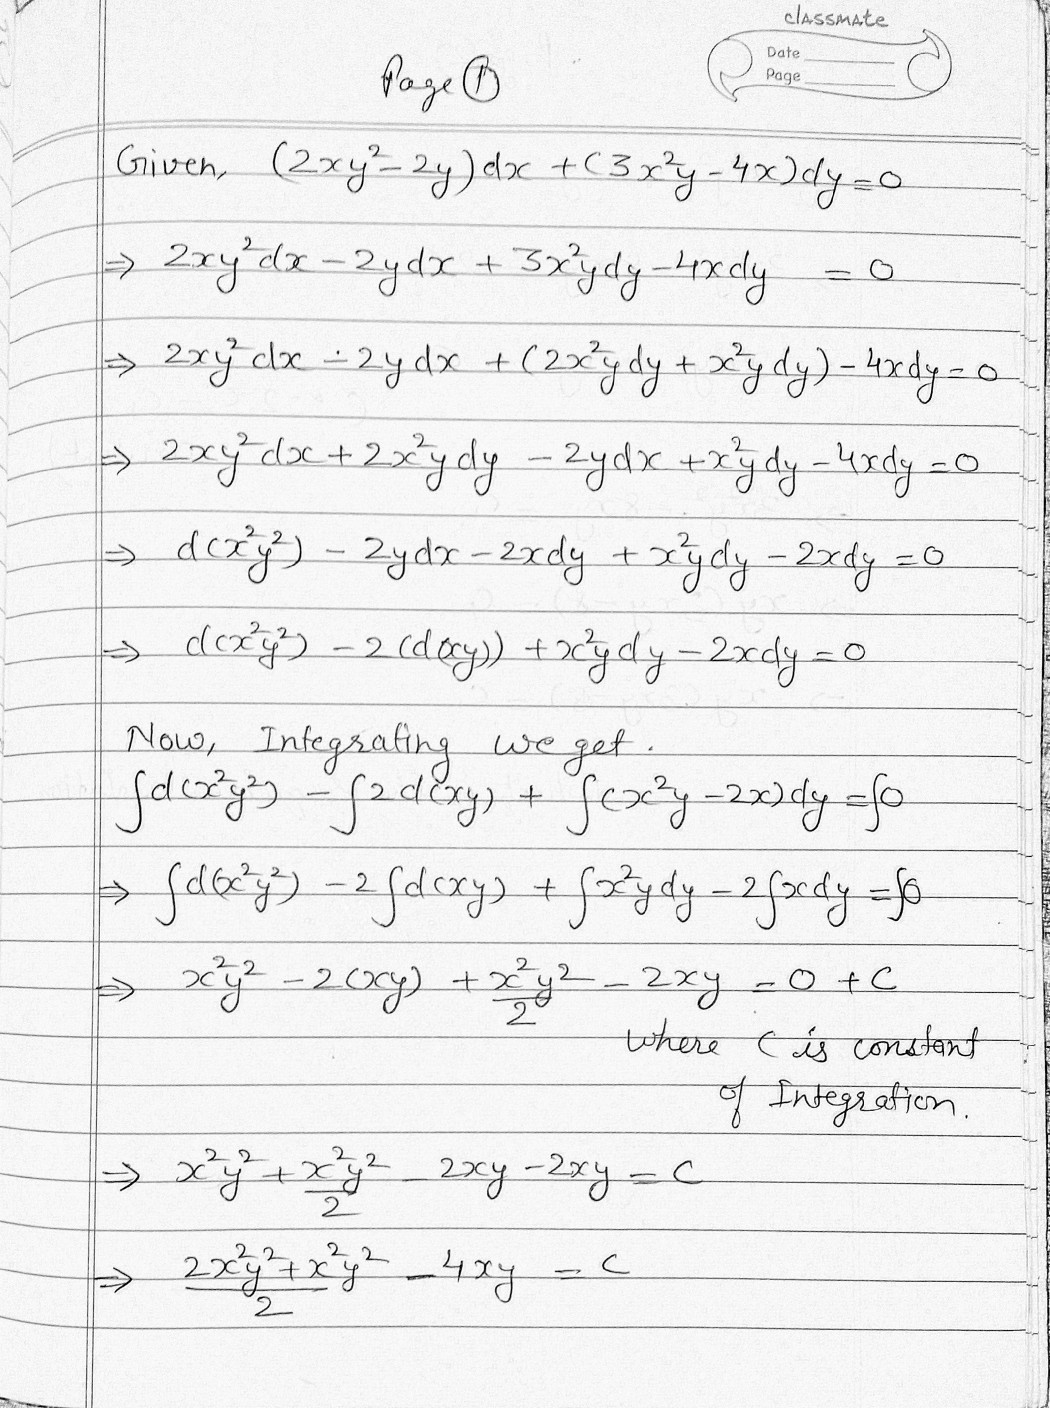 classmate
Date
Page
Page ①
Given, (2xy²-2y)dx + (3x²y-4x)dy=0
⇒ 2xy²dx - 2ydx + 3x²ydy - 4xdy = 0
⇒ 2xy²dx - 2ydx + (2x²ydy + x²ydy) - 4xdy = 0
⇒ 2xy²dx + 2x²ydy - 2ydx + x²ydy - 4xdy = 0
⇒ d(x²y²) - 2ydx - 2xdy + x²ydy - 2xdy = 0
⇒ d(x²y²) - 2(d(xy)) + x²ydy - 2xdy = 0
Now, Integrating we get.
∫d(x²y²) - ∫2d(xy) + ∫(x²y - 2x)dy = ∫0
⇒ ∫d(x²y²) - 2∫d(xy) + ∫x²ydy - 2∫xdy = ∫0
⇒ x²y² - 2(xy) + x²y²/2 - 2xy = 0 + C
where C is constant
of Integration.
⇒ x²y² + x²y²/2 - 2xy - 2xy = C
⇒ (2x²y² + x²y²)/2 - 4xy = C